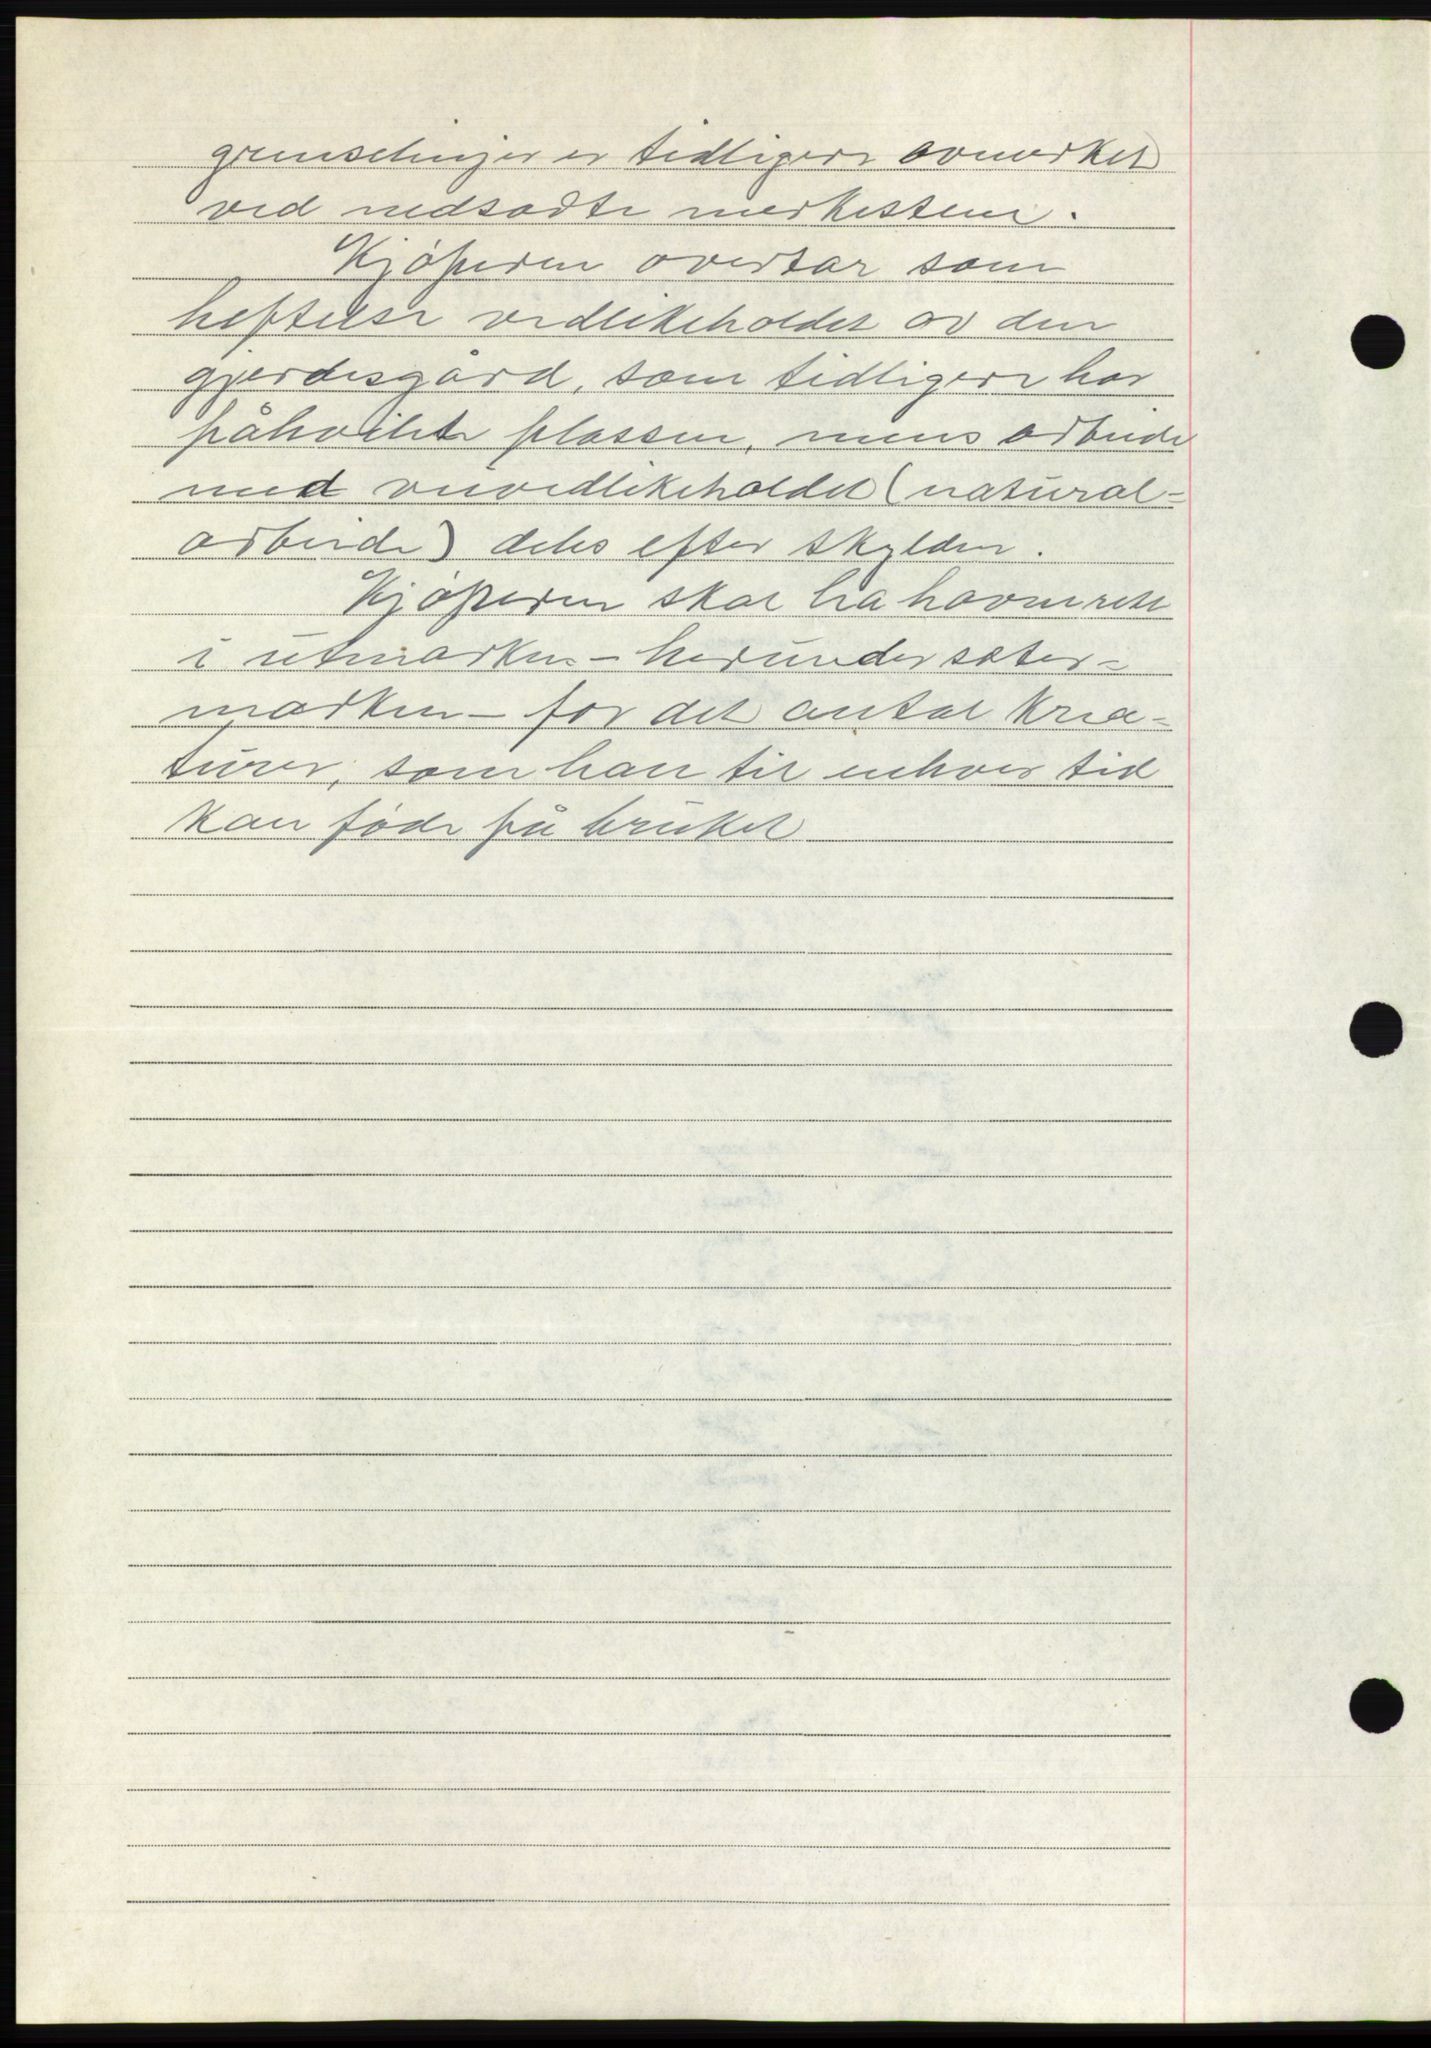 grenselinjer er tidligere avmerket
ved nedsatte merkestene.
Kjøperen overtar som
heftelse vedlikeholdet av den
gjerdesgård, som tidligere har
påhvilet plassen, mens arbeide
med veivedlikeholdet (natural-
arbeide) deles efter skylden.
Kjøperen skal ha havnerett
i utmarken - herunder sæter-
marken - for det antal krea-
turer, som han til enhver tid
kan føde på bruket